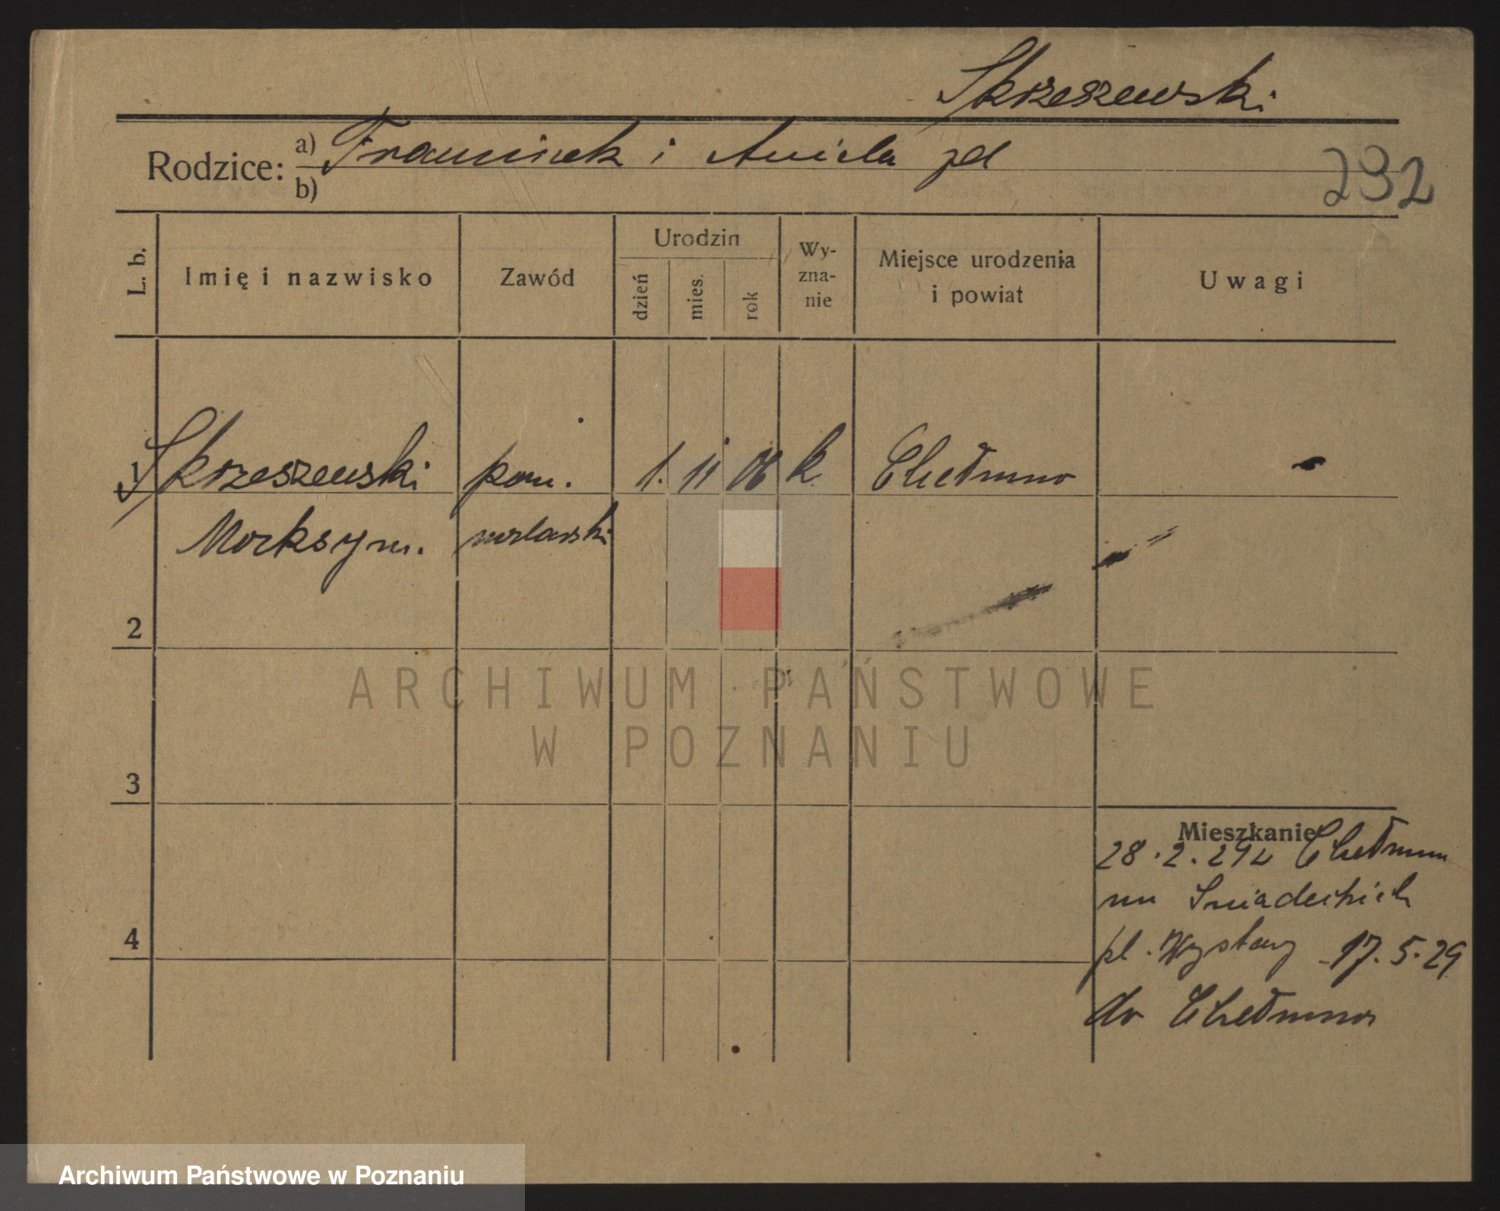 Skrzeszewski
Rodzice: a) Franciszek i Aniela zd
b)
292
L. b.
Imię i nazwisko
Zawód
Urodzin
dzień
mies.
rok
Wy-
zna-
nie
Miejsce urodzenia
i powiat
Uwagi
1 Skrzeszewski pom. 1. 11 06 k. Chełmno
Maksym. malarski
2
3
4
Mieszkanie
28.2.29 z Chełmna
na Śniadeckich
pl. Wystawy 17.5.29
do Chełmna
ARCHIWUM PAŃSTWOWE
W POZNANIU
Archiwum Państwowe w Poznaniu